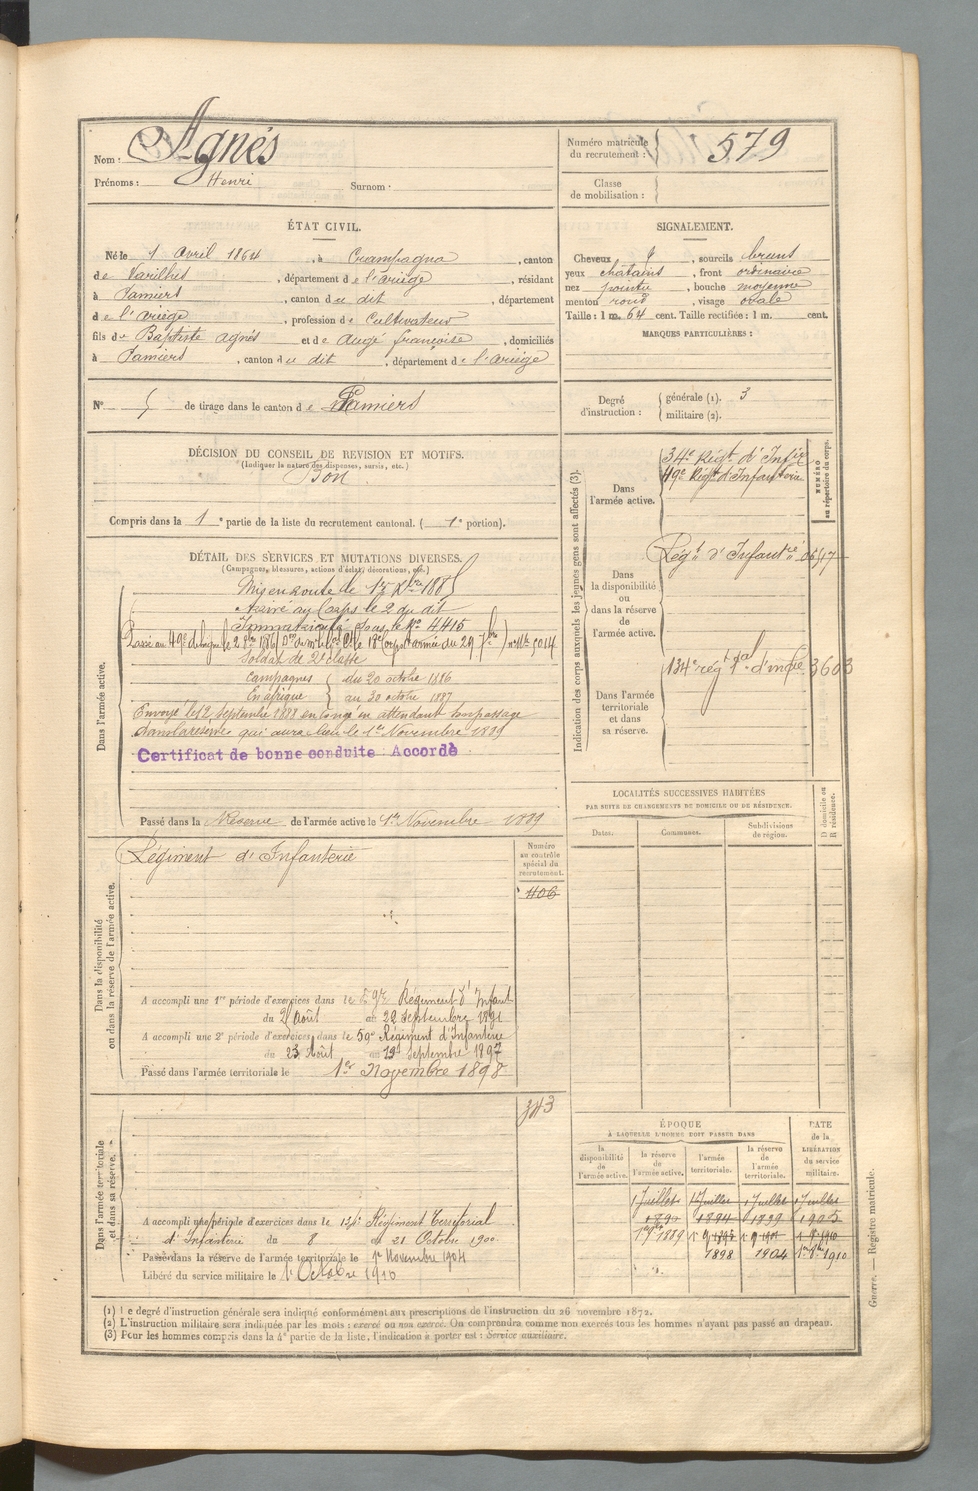 Nom : Agnés
Prénoms : Henri Surnom :
Numéro matricule du recrutement : 579
Classe de mobilisation :
ÉTAT CIVIL.
Né le 1 Avril 1864, à Crampagna, canton
de Varilhes, département de l'ariège, résidant
à Pamiers, canton du dit, département
de l'ariège, profession de Cultivateur
fils de Baptiste agnés et de Augé françoise, domiciliés
à Pamiers, canton du dit, département de l'ariège
N° 5 de tirage dans le canton de Pamiers
SIGNALEMENT.
Cheveux, sourcils bruns
yeux chatains, front ordinaire
nez pointu, bouche moyenne
menton rond, visage ovale
Taille : 1 m. 64 cent. Taille rectifiée : 1 m. cent.
MARQUES PARTICULIÈRES :
Degré d'instruction : générale (1). 3
militaire (2).
DÉCISION DU CONSEIL DE REVISION ET MOTIFS.
(Indiquer la nature des dispenses, sursis, etc.)
Bon
Compris dans la 1e partie de la liste du recrutement cantonal. (1e portion).
DÉTAIL DES SERVICES ET MUTATIONS DIVERSES.
(Campagnes, blessures, actions d'éclat, décorations, etc.)
Dans l'armée active.
Mis en route le 1er Xbre 1885
Arrivé au Corps le 2 du dit
Immatriculé sous le N° 4415
Passé au 49e de ligne le 2 8bre 1886 le 18e Corps d'armée du 29 7bre n° Mle 5014
Soldat de 2e classe
Campagnes du 20 octobre 1886
En afrique au 30 octobre 1887
Envoyé le 12 Septembre 1888 en congé en attendant son passage
dans la réserve qui aura lieu le 1er Novembre 1889
Certificat de bonne conduite : Accordé
Passé dans la Réserve de l'armée active le 1er Novembre 1889
Indication des corps auxquels les jeunes gens sont affectés (3).
NUMÉRO au répertoire du corps.
Dans l'armée active.
34e Régt. d'Infie
49e Régt d'Infanterie
Dans la disponibilité ou dans la réserve de l'armée active.
Régt d'Infantie
Dans l'armée territoriale et dans sa réserve.
134e régt tal d'infie 3603
LOCALITÉS SUCCESSIVES HABITÉES
PAR SUITE DE CHANGEMENTS DE DOMICILE OU DE RÉSIDENCE.
Dates. Communes. Subdivisions de région. D domicile ou R résidence.
Dans la disponibilité ou dans la réserve de l'armée active.
Régiment d'Infanterie
Numéro au contrôle spécial du recrutement.
406
A accompli une 1re période d'exercices dans le 59e Régiment d'Infant
du 2 Août au 29 Septembre 1891
A accompli une 2e période d'exercices dans le 59e Régiment d'Infanterie
du 23 Août au 19 Septembre 1897
Passé dans l'armée territoriale le 1er Novembre 1898
Dans l'armée territoriale et dans sa réserve.
343
A accompli une période d'exercices dans le 134e Régiment Territorial
d'Infanterie du 8 au 21 Octobre 1900
Passé dans la réserve de l'armée territoriale le 1er Novembre 1904
Libéré du service militaire le 1er Octobre 1910
ÉPOQUE
À LAQUELLE L'HOMME DOIT PASSER DANS
la disponibilité de l'armée active. la réserve de l'armée active. l'armée territoriale. la réserve de l'armée territoriale.
DATE de la LIBÉRATION du service militaire.
1 Juillet 1 Juillet 1 Juillet 1 Juillet
1890 1894 1899 1905
1er 9bre 1889
1898 1904 1er 8bre 1910
(1) Le degré d'instruction générale sera indiqué conformément aux prescriptions de l'instruction du 26 novembre 1872.
(2) L'instruction militaire sera indiquée par les mots : exercé ou non exercé. On comprendra comme non exercés tous les hommes n'ayant pas passé au drapeau.
(3) Pour les hommes compris dans la 4e partie de la liste, l'indication à porter est : Service auxiliaire.
Guerre. — Registre matricule.